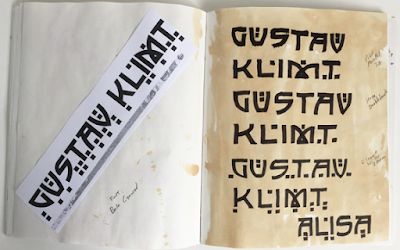 GUSTAV KLIMT
GUSTAV
KLIMT
GUSTAV
KLIMT
GUSTAV
KLIMT
ALISA